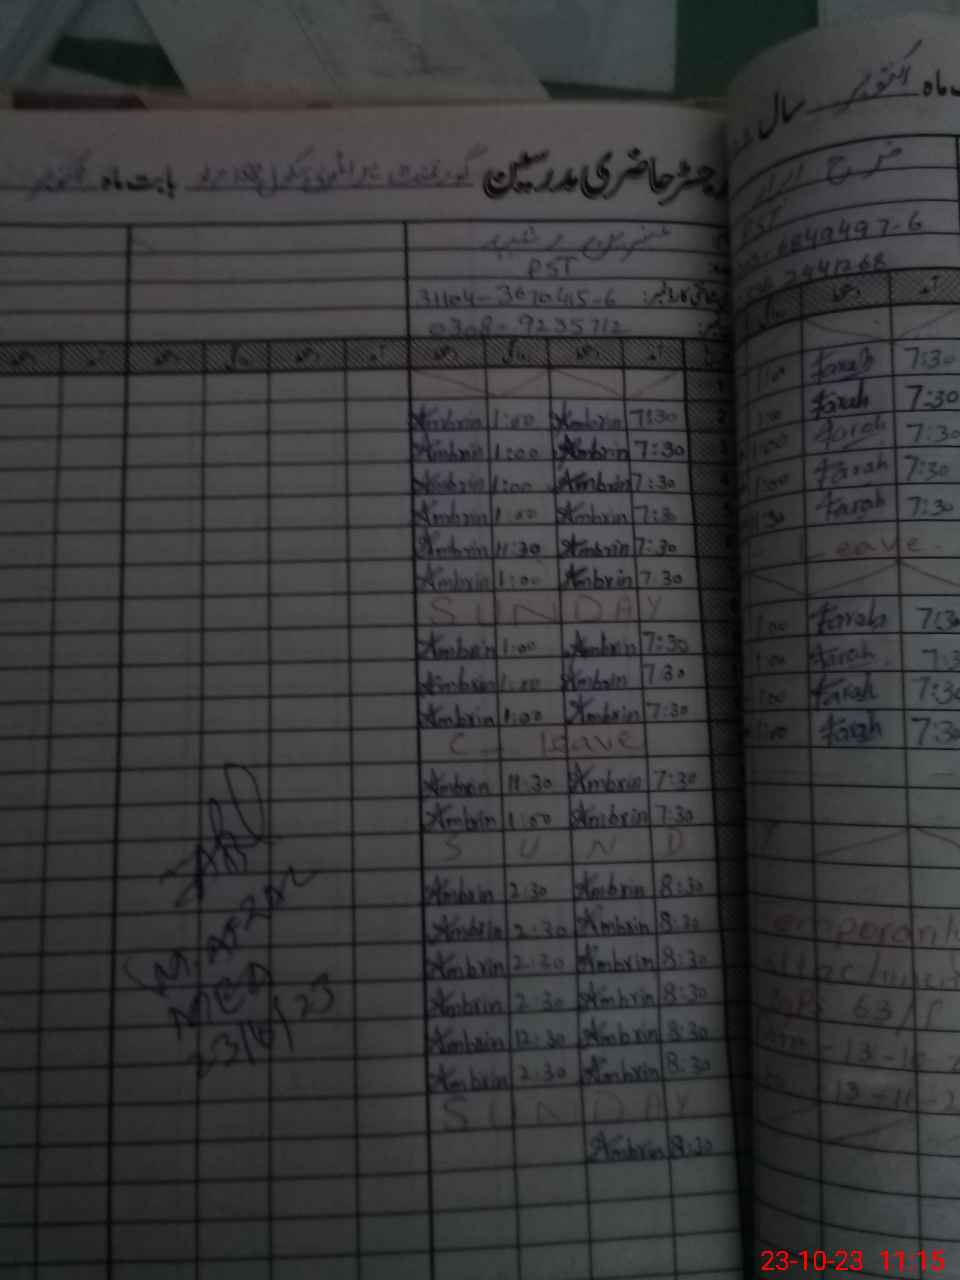 رجسٹر حاضری مدرسین گورنمنٹ بابت ماہ اکتوبر
PST
31104-3670415-6
0308-9235712
Ambrin 1:00 Ambrin 7:30
Ambrin 1:00 Ambrin 7:30
Ambrin 1:00 Ambrin 7:30
Ambrin 1:00 Ambrin 7:30
Ambrin 11:30 Ambrin 7:30
Ambrin 1:00 Ambrin 7:30
SUNDAY
Ambrin 1:00 Ambrin 7:30
Ambrin 1:00 Ambrin 7:30
Ambrin 1:00 Ambrin 7:30
C - leave
Ambrin 11:30 Ambrin 7:30
Ambrin 1:00 Ambrin 7:30
S U N D
Ambrin 2:30 Ambrin 8:30
Ambrin 2:30 Ambrin 8:30
Ambrin 2:30 Ambrin 8:30
Ambrin 2:30 Ambrin 8:30
Ambrin 12:30 Ambrin 8:30
Ambrin 2:30 Ambrin 8:30
SUNDAY
Ambrin 8:30
23/10/23
ماہ اکتوبر سال
فرح
PST
6849497-6
2441268
1:00 Farah 7:30
1:00 Farah 7:30
1:00 Farah 7:30
1:00 Farah 7:30
11:30 Farah 7:30
Leave
1:00 Farah 7:30
1:00 Farah 7:3
1:00 Farah 7:30
1:00 Farah 7:30
Y
63/
13-10-2
23-10-23 11:15